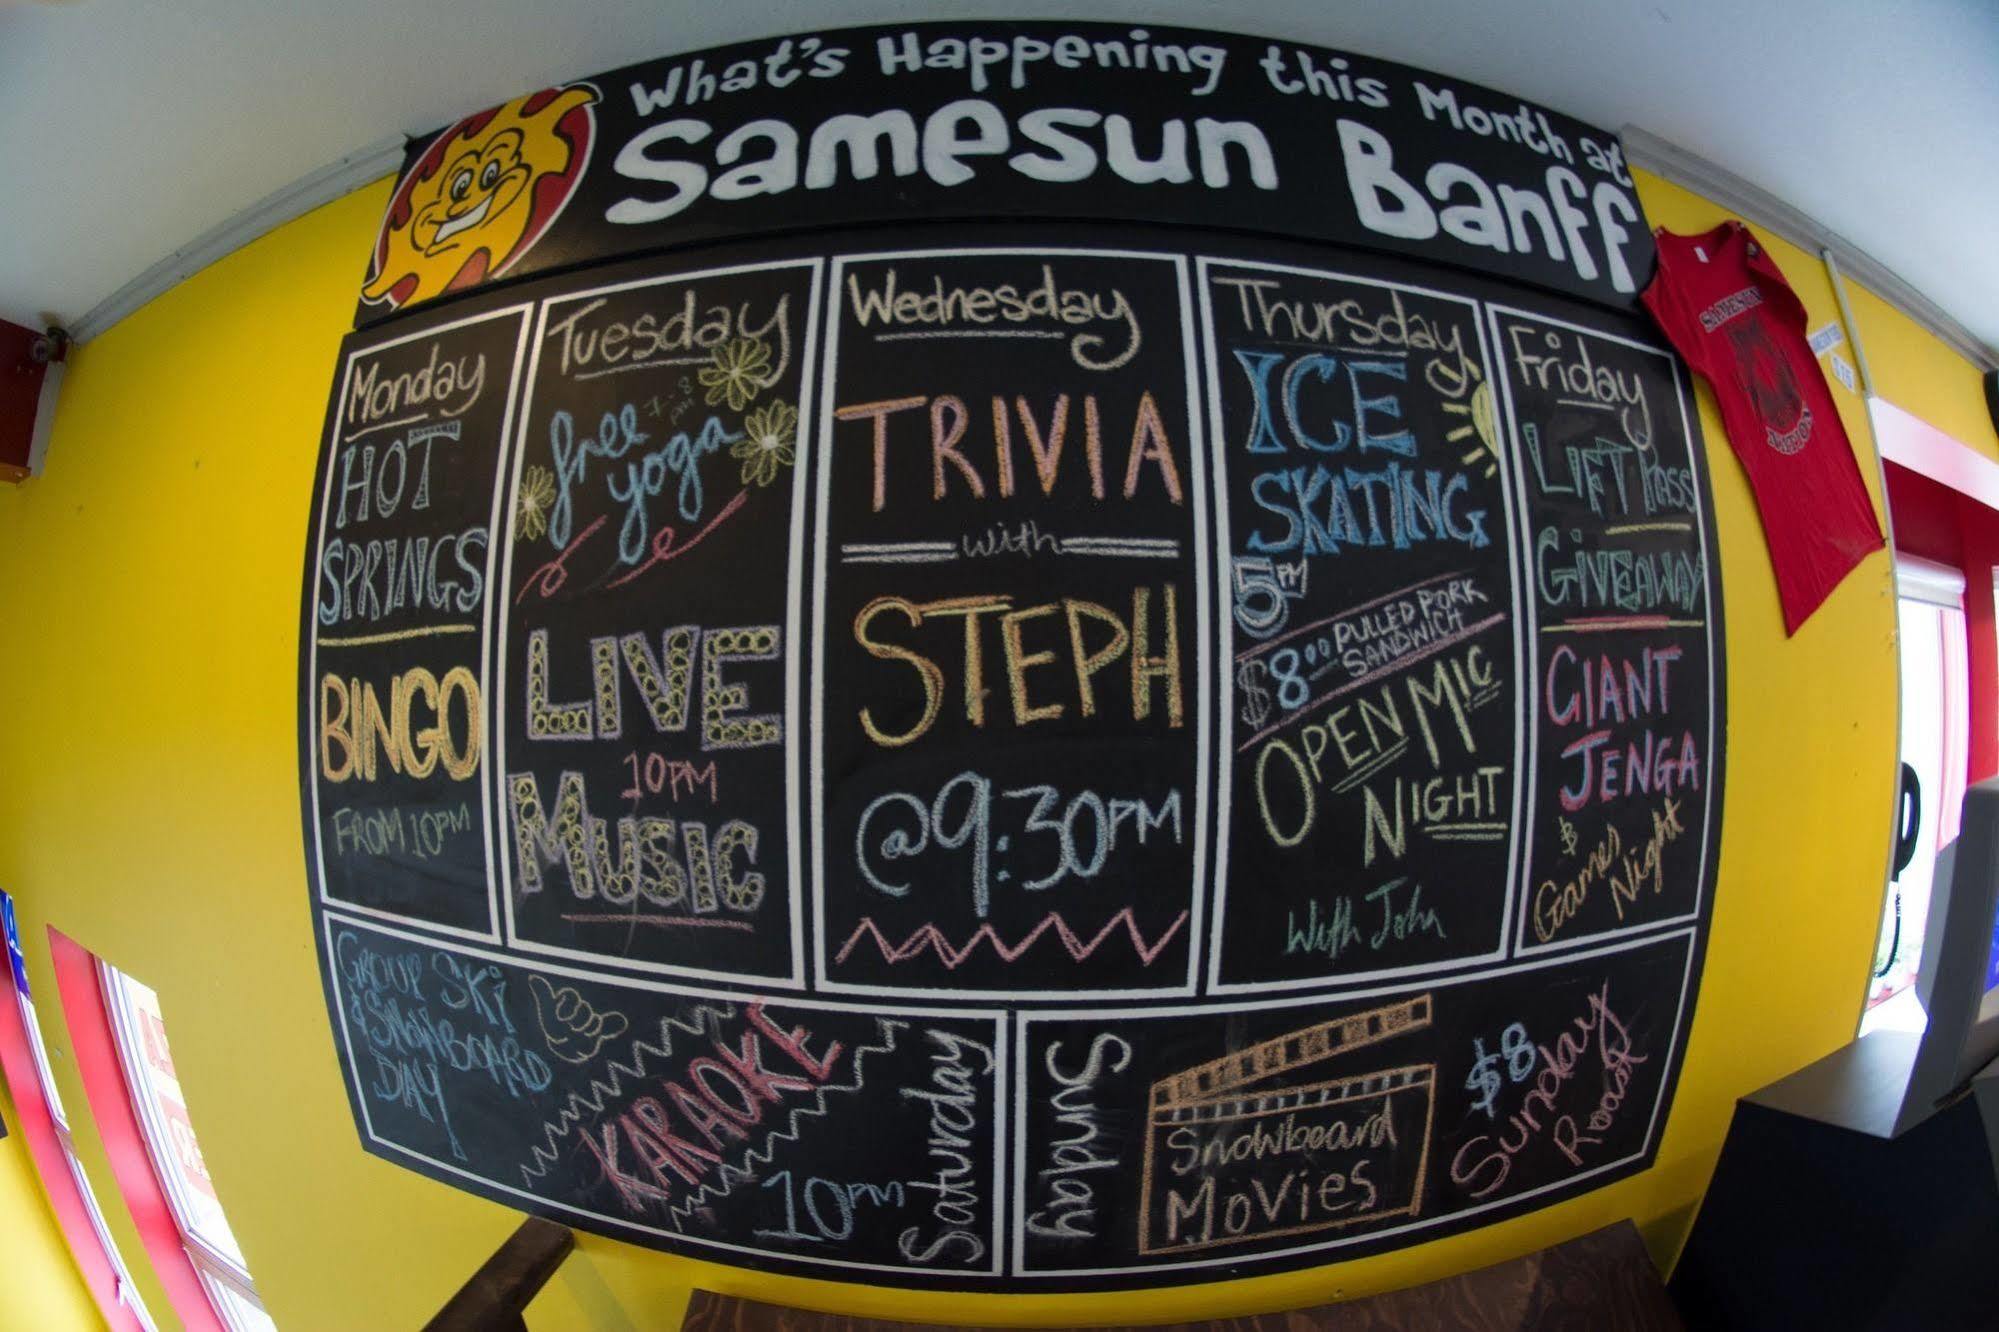 What's Happening this Month at
Samesun Banff
Monday
HOT
SPRINGS
BINGO
FROM 10PM
Tuesday
7-8
PM
free
yoga
LIVE
10PM
MUSIC
Wednesday
TRIVIA
with
STEPH
@9:30PM
Thursday
ICE
SKATING
5PM
$8.00 PULLED PORK
SANDWICH
OPEN MIC
NIGHT
With John
Friday
LIFT PASS
GIVEAWAY
GIANT
JENGA
&
Games
Night
GROUP SKI
& SNOWBOARD
DAY
KARAOKE
10PM
Saturday
Sunday
Snowboard
Movies
$8
Sunday
Roast
SAMESUN
$15